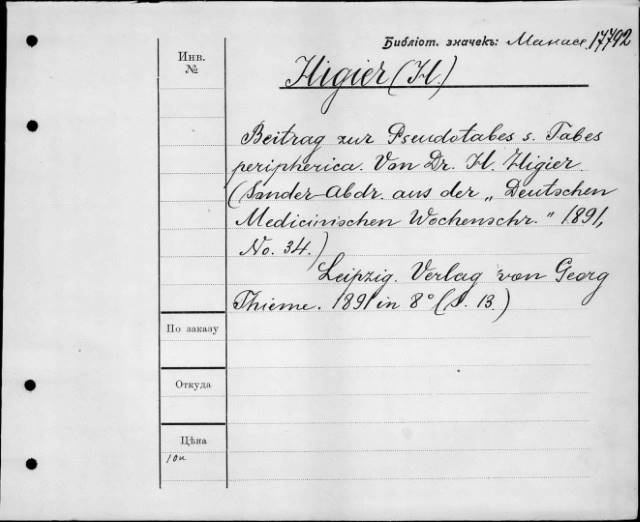 Библіот. значекъ: Манасс. 17792
Инв.
№
Higier (H.)
Beitrag zur Pseudotabes s. Tabes
peripherica. Von Dr. H. Higier
(Sonder-Abdr. aus der „Deutschen
Medicinischen Wochenschr." 1891,
No. 34.)
Leipzig. Verlag von Georg
Thieme. 1891 in 8° (S. 13.)
По заказу
Откуда
Цѣна
10к